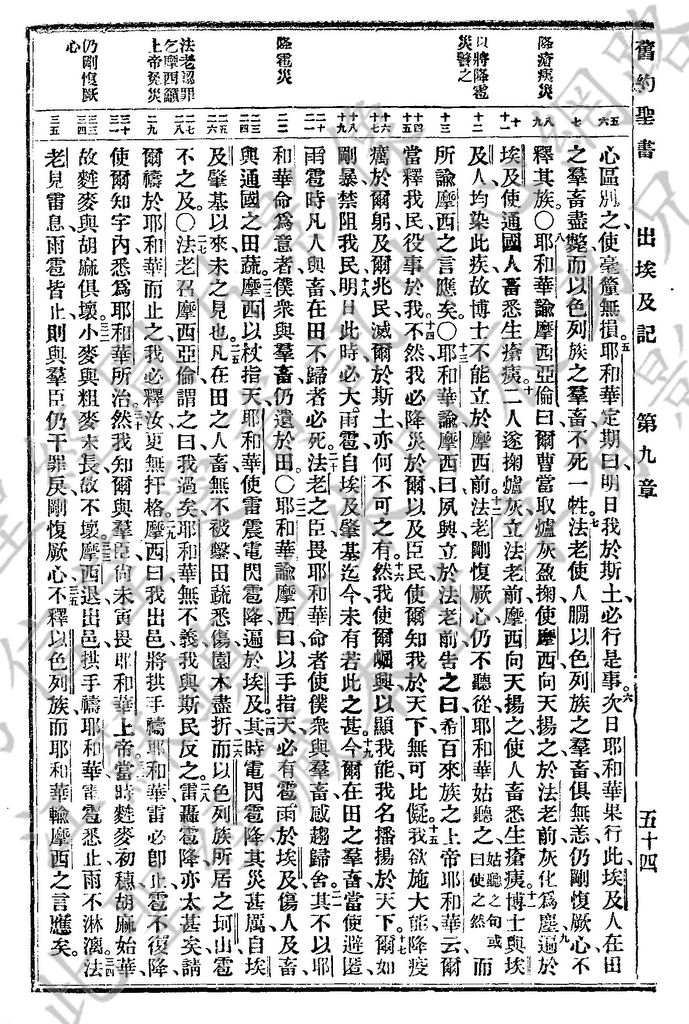 舊約聖書 出埃及記 第九章 五十四
降瘡痍災
以將降雹災警之
降雹災
法老認罪乞摩西籲上帝免災
仍剛愎厥心
五 六
七
八 九
十 十一
十二
十三
十四 十五
十六 十七
十八 十九
二十 二一
二二
二三 二四
二五 二六
二七 二八
二九
三十 三一
三二 三三 三四
三五
心區別之使毫釐無損耶和華定期曰明日我於斯土必行是事次日耶和華果行此埃及人在田
之羣畜盡斃而以色列族之羣畜不死一牲法老使人覵以色列族之羣畜俱無恙仍剛愎厥心不
釋其族〇耶和華諭摩西亞倫曰爾曹當取爐灰盈掬使摩西向天揚之於法老前灰化為塵遍於
埃及使通國人畜悉生瘡痍二人遂掬爐灰立法老前摩西向天揚之使人畜悉生瘡痍博士與埃
及人均染此疾故博士不能立於摩西前法老剛愎厥心仍不聽從耶和華姑聽之姑聽之句或曰使之然而
所諭摩西之言應矣〇耶和華諭摩西曰夙興立於法老前告之曰希百來族之上帝耶和華云爾
當釋我民役事於我不然我必降災於爾以及臣民使爾知我於天下無可比儗我欲施大能降疫
癘於爾躬及爾兆民滅爾於斯土亦何不可之有然我使爾崛興以顯我能我名播揚於天下爾如
剛暴禁阻我民明日此時必大雨雹自埃及肇基迄今未有若此之甚今爾在田之羣畜當使避匿
雨雹時凡人與畜在田不歸者必死法老之臣畏耶和華命者使僕衆與羣畜咸趨歸舍其不以耶
和華命為意者僕衆與羣畜仍遺於田〇耶和華諭摩西曰以手指天必有雹雨於埃及傷人及畜
與通國之田蔬摩西以杖指天耶和華使雷震電閃雹降遍於埃及其時電閃雹降其災甚厲自埃
及肇基以來未之見也凡在田之人畜無不被擊田蔬悉傷園木盡折而以色列族所居之坷山雹
不之及〇法老召摩西亞倫謂之曰我過矣耶和華無不義我與斯民反之雷轟雹降亦太甚矣請
爾禱於耶和華而止之我必釋汝更無扞格摩西曰我出邑將拱手禱耶和華雷必卽止雹不復降
使爾知宇內悉為耶和華所治然我知爾與羣臣尚未寅畏耶和華上帝當時麰麥初穗胡麻始華
故麰麥與胡麻俱壞小麥與粗麥未長故不壞摩西退出邑拱手禱耶和華雷雹悉止雨不淋漓法
老見雷息雨雹皆止則與羣臣仍干罪戾剛愎厥心不釋以色列族而耶和華輸摩西之言應矣